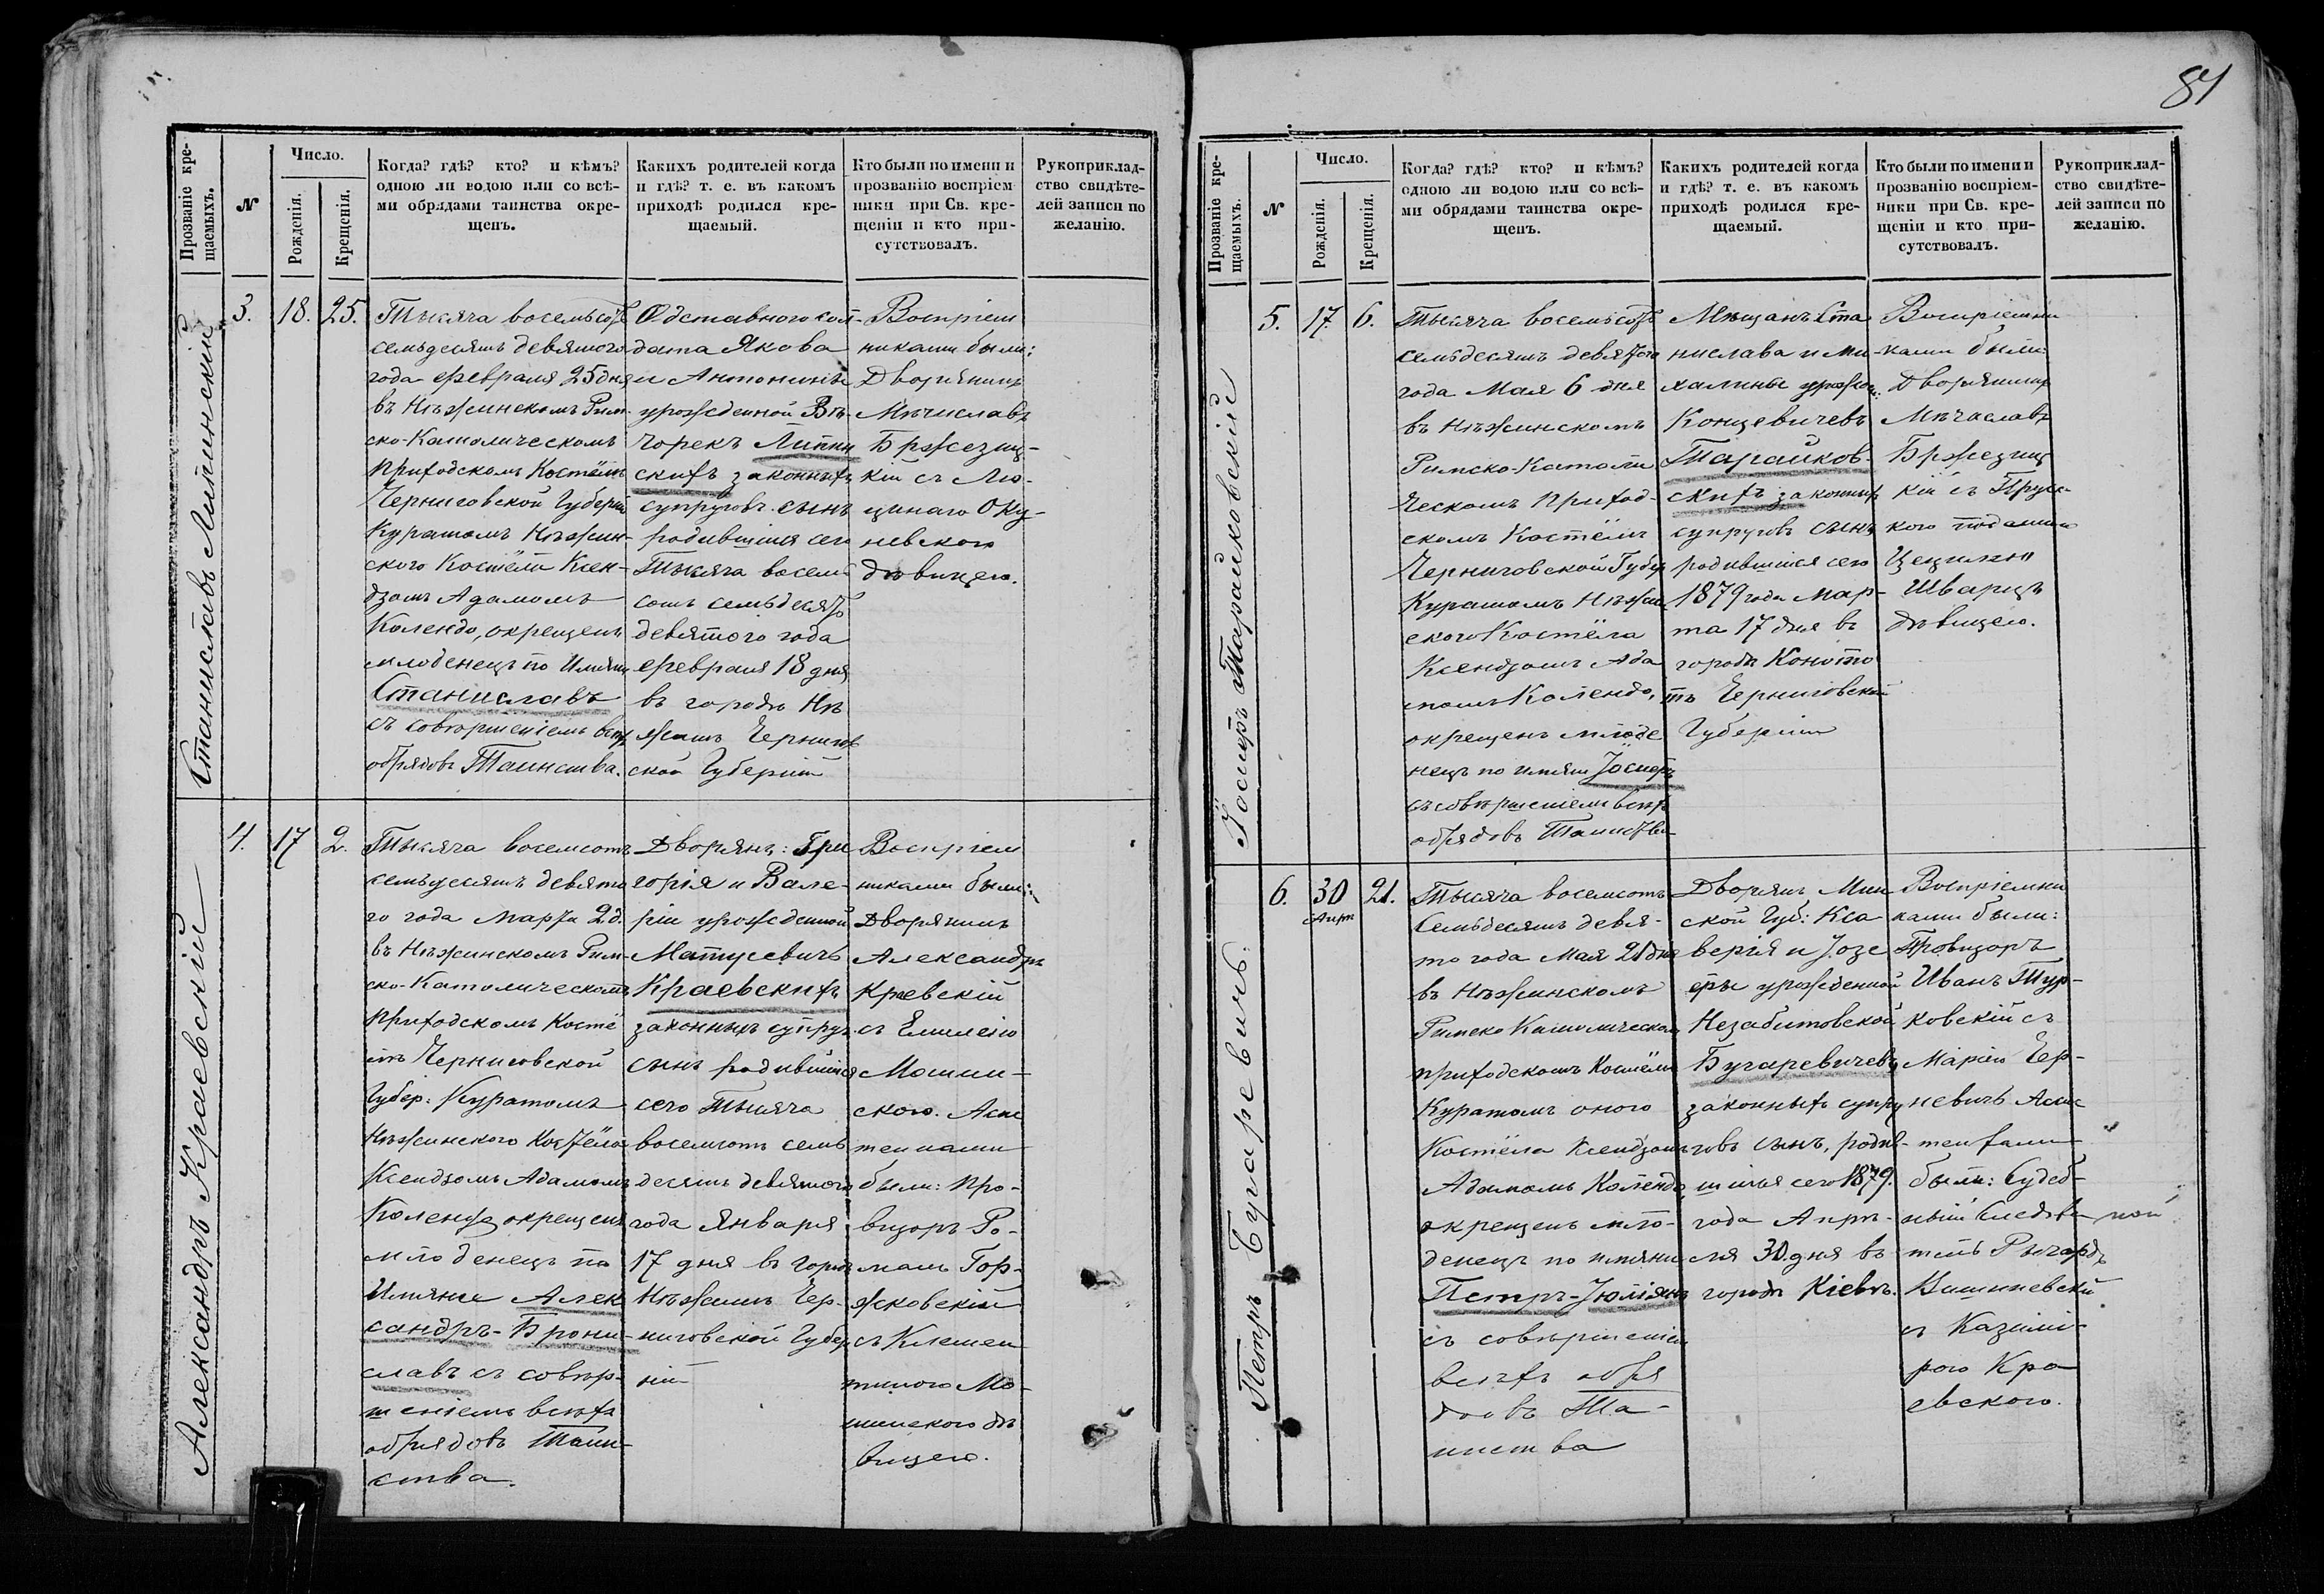 84
Прозваніе кре-
щаемыхъ.
N
Число.
Рожденія.
Крещенія.
Когда? гдѣ? кто? и кѣмъ?
одною ли водою или со всѣ-
ми обрядами таинства окре-
щенъ.
Какихъ родителей когда
и гдѣ? т. е. въ какомъ
приходѣ родился кре-
щаемый.
Кто были по имени и
прозванію воспріем-
ники при Св. кре-
щеніи и кто при-
сутствовалъ.
Рукоприклад-
ство свидѣте-
лей записи по
желанію.
Станиславъ Липинский
3.
18.
25.
Тысяча восемьсотъ
семьдесятъ девятого
года февраля 25 дня
въ Нѣжинскомъ Рим-
ско-Католическомъ
приходскомъ Костёлѣ
Черниговской Губерніи
Куратомъ Нѣжин-
ского Костёла Ксен-
дзомъ Адамомъ
Коленdо, окрещенъ
младенецъ по Имяни
Станиславъ
съ совѣршеніемъ всѣхъ
обрядовъ Таинства.
Одставного сол-
дата Якова
и Антонины
урожденной Вѣ-
чорекъ Липин
скихъ законныхъ
супруговъ сынъ
родившійся сего
Тысяча восемь
сотъ семьдесятъ
девятого года
февраля 18 дня
въ городѣ Нѣ
жинѣ Чернигов
ской Губерніи
Воспріем
никами были:
Дворянинъ
Мѣчиславъ
Бржезиц-
кій съ Лю-
циною Оку-
невскою
дѣвицею.
Александръ Краевскій
4.
17
2.
Тысяча восемсотъ
семьдесятъ девято
го года Марта 2 д.
въ Нѣжинскомъ Рим-
ско-Католическомъ
приходскомъ Костё
лѣ Черниговской
Губер: Куратомъ
Нѣжинского Костёла
Ксендзомъ Адамомъ
Коленdо окрещенъ
младенецъ по
Имяни Алек
сандръ-Брони-
славъ съ совѣр-
шеніемъ всѣхъ
обрядовъ Таин-
ства.
Дворянъ: Гри
горія и Вале-
ріи урожденной
Матусевичъ
Краевскихъ
законныхъ супруг.
сынъ родившійся
сего Тысяча
восемсотъ семь
десятъ девятого
года Января
17 дня въ городѣ
Нѣжинѣ Чер-
ниговской Губер
ніи
Воспріем
никами были:
Дворянинъ
Александръ
Краевскій
съ Емилею
Мошин-
скою. Асис
тентами
были: Про-
визоръ Ро-
манъ Гор-
жковскій
съ Клемен
тиною Мо-
шинскою дѣ
вицею.
Прозваніе кре-
щаемыхъ.
N
Число.
Рожденія.
Крещенія.
Когда? гдѣ? кто? и кѣмъ?
одною ли водою или со всѣ-
ми обрядами таинства окре-
щенъ.
Какихъ родителей когда
и гдѣ? т. е. въ какомъ
приходѣ родился кре-
щаемый.
Кто были по имени и
прозванію воспріем-
ники при Св. кре-
щеніи и кто при-
сутствовалъ.
Рукоприклад-
ство свидѣте-
лей записи по
желанію.
Іосифъ Тарайковскій
5.
17.
6.
Тысяча восемьсотъ
семьдесятъ девятого
года Мая 6 дня
въ Нѣжинскомъ
Римско-Католи
ческомъ Приход-
скомъ Костёлѣ
Черниговской Губер
Куратомъ Нѣжин
ского Костёла
Ксендзомъ Ада
момъ Коленdо,
окрещенъ младе
нецъ по имяни Іосифъ
съ совѣршеніемъ всѣхъ
обрядовъ Таинства
Мѣщанъ Ста
нислава и Ми-
халины урожден:
Концевичевъ
Тарайков-
скихъ законныхъ
супруговъ сынъ
родившійся сего
1879 года Мар-
та 17 дня въ
городѣ Коното
пѣ Черниговской
Губерніи
Воспріемни
ками были:
Дворянинъ
Мѣчаславъ
Бржезиц
кій съ Прус-
кого подданною
Цецилію
Шварцъ
дѣвицею.
Петръ Бугаревичъ:
6.
30
Апр
21.
Тысяча восемсотъ
Семьдесятъ девя-
то года Мая 21 дня
въ Нѣжинскомъ
Римско Католическом
приходскомъ Костёлѣ
Куратомъ оного
Костёла Ксендзомъ
Адамомъ Коленdо
окрещенъ мла-
денецъ по имяни
Петръ-Юліянъ
съ совѣршеніем
всѣхъ обря
довъ Та-
инства
Дворянъ Мин
ской Губ: Кса
верія и Іозе
фы урожденной
Незабитовской
Бугаревичевъ
законныхъ супру
говъ сынъ, родив-
шійся сего 1879.
года Апрѣ-
ля 30 дня въ
городѣ Кіевѣ.
Воспріемни
ками были:
Провизоръ
Иванъ Тур-
ковскій съ
Маріею Чер-
невичъ Асис
тентами
были: Судеб-
ный Следова
тель Рычардъ
Вишневскій
съ Казими-
рою Кра
евскою.